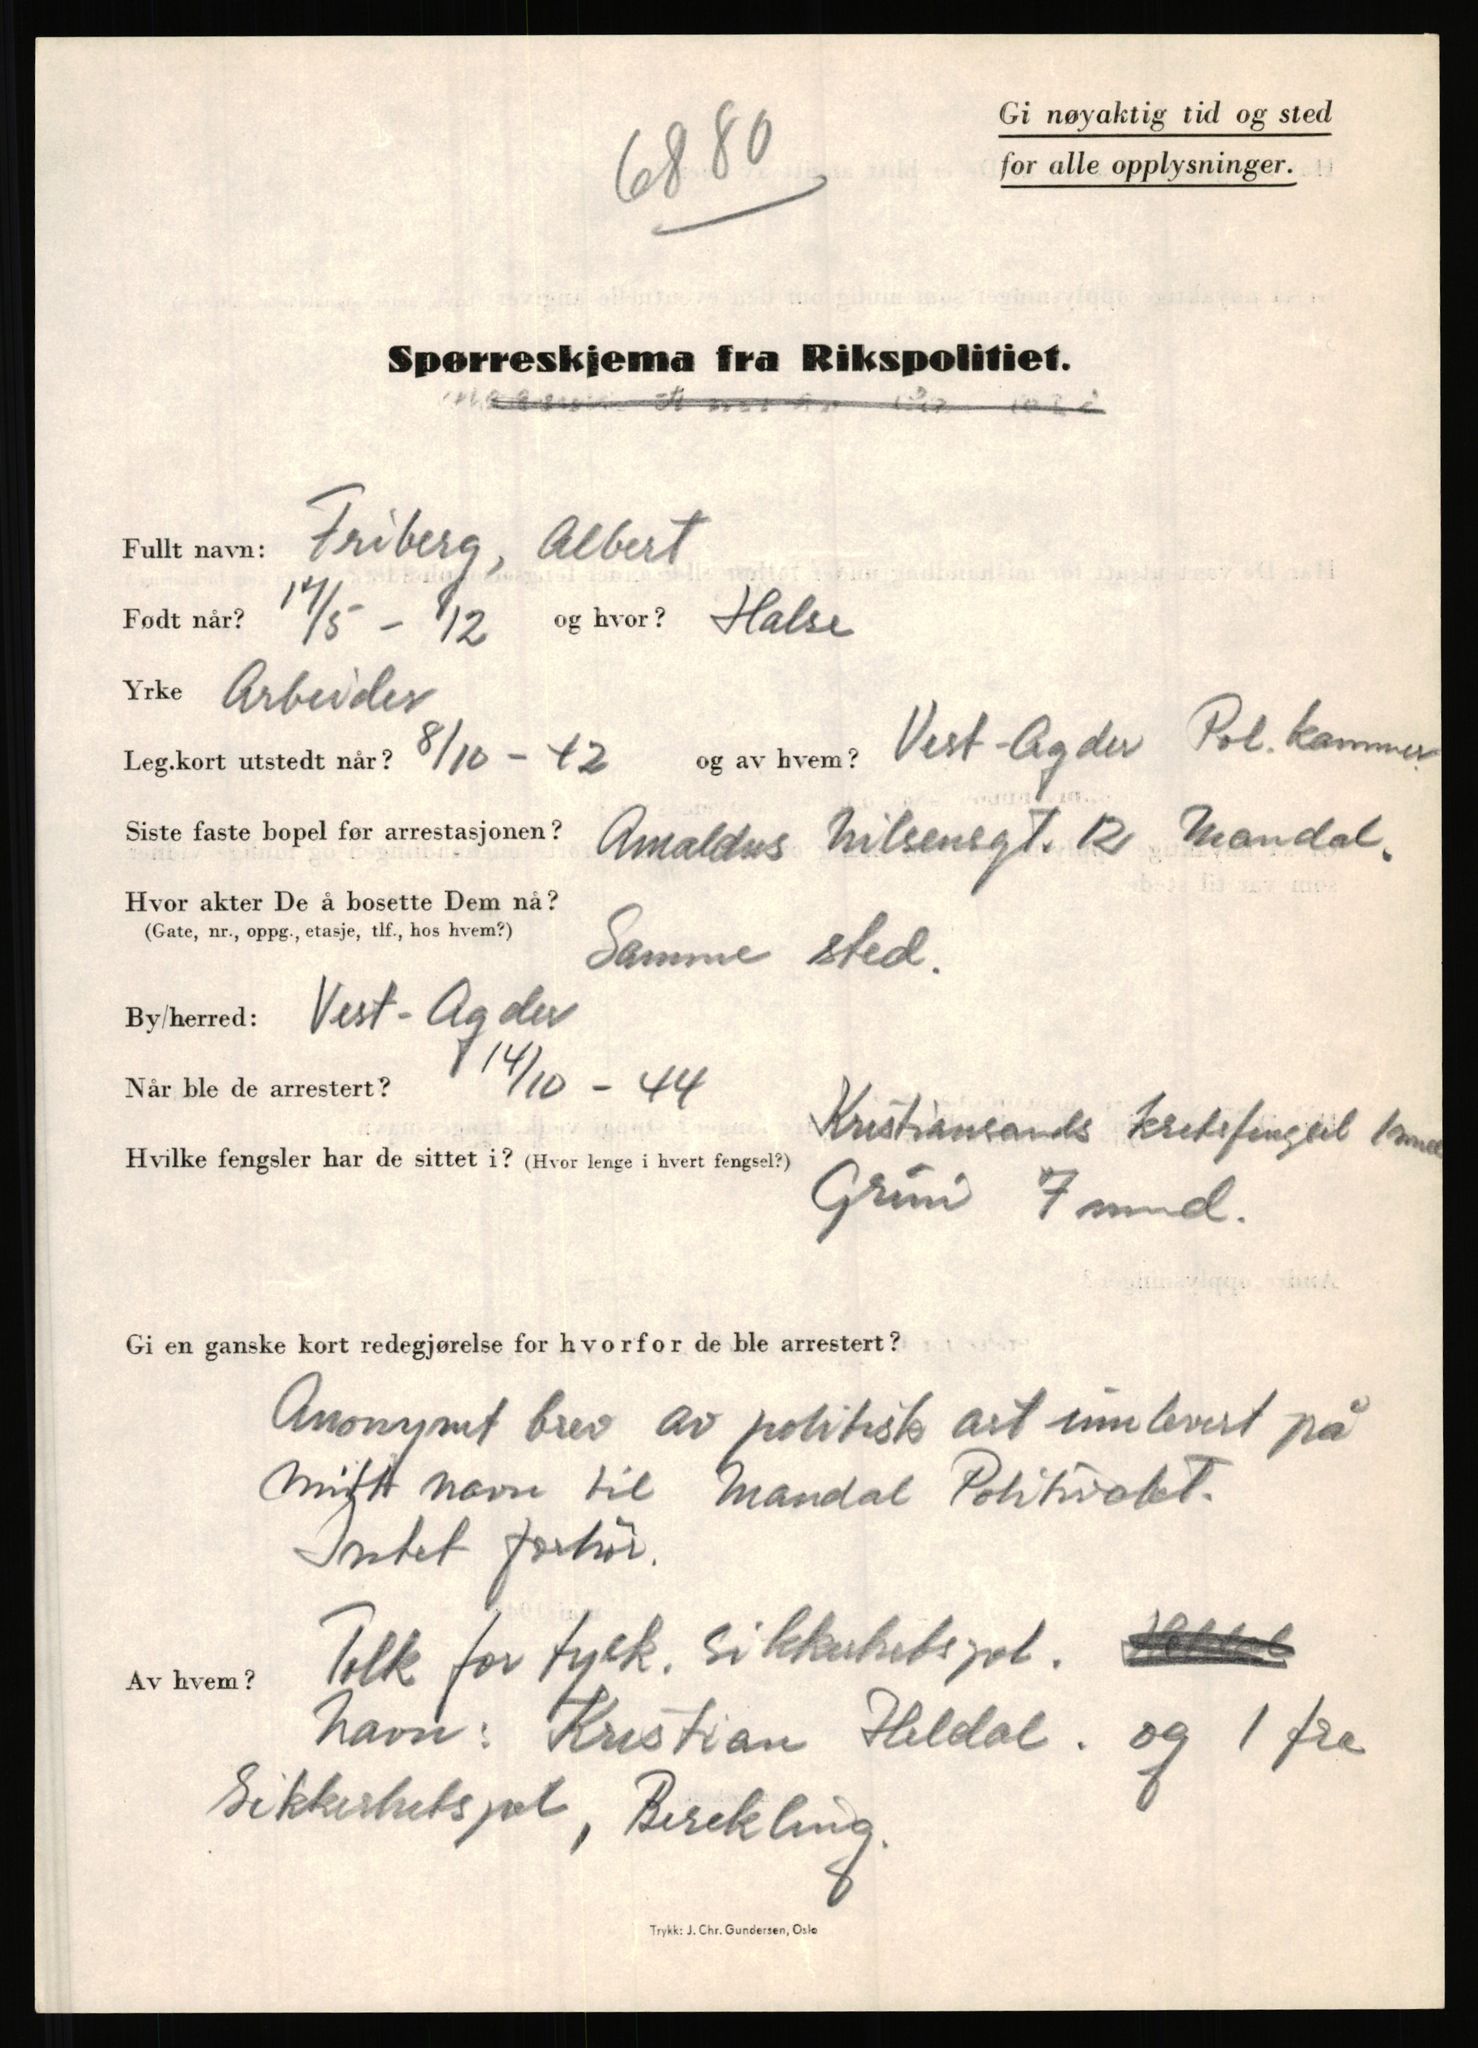 6880
Gi nøyaktig tid og sted
for alle opplysninger.
Spørreskjema fra Rikspolitiet.
Fullt navn: Friberg, Albert
Født når? 17/5 - 12 og hvor? Halse
Yrke Arbeider
Leg.kort utstedt når? 8/10 - 42 og av hvem? Vest-Agder Pol.kammer
Siste faste bopel før arrestasjonen? Amaldus Nilsensgt. 12 Mandal.
Hvor akter De å bosette Dem nå?
(Gate, nr., oppg., etasje, tlf., hos hvem?) Samme sted.
By/herred: Vest-Agder
Når ble de arrestert? 14/10 - 44
Hvilke fengsler har de sittet i? (Hvor lenge i hvert fengsel?) Kristiansands kretsfengsel 1 mnd
Grini 7 mnd.
Gi en ganske kort redegjørelse for hvorfor de ble arrestert?
Anonymt brev av politisk art innlevert på
mitt navn til Mandal Politivakt.
Intet forhör.
Av hvem? Tolk for tysk. Sikkerhetspol.
Navn: Kristian Heldal. og 1 fra
Sikkerhetspol, Berekling.
Trykk: J. Chr. Gundersen, Oslo